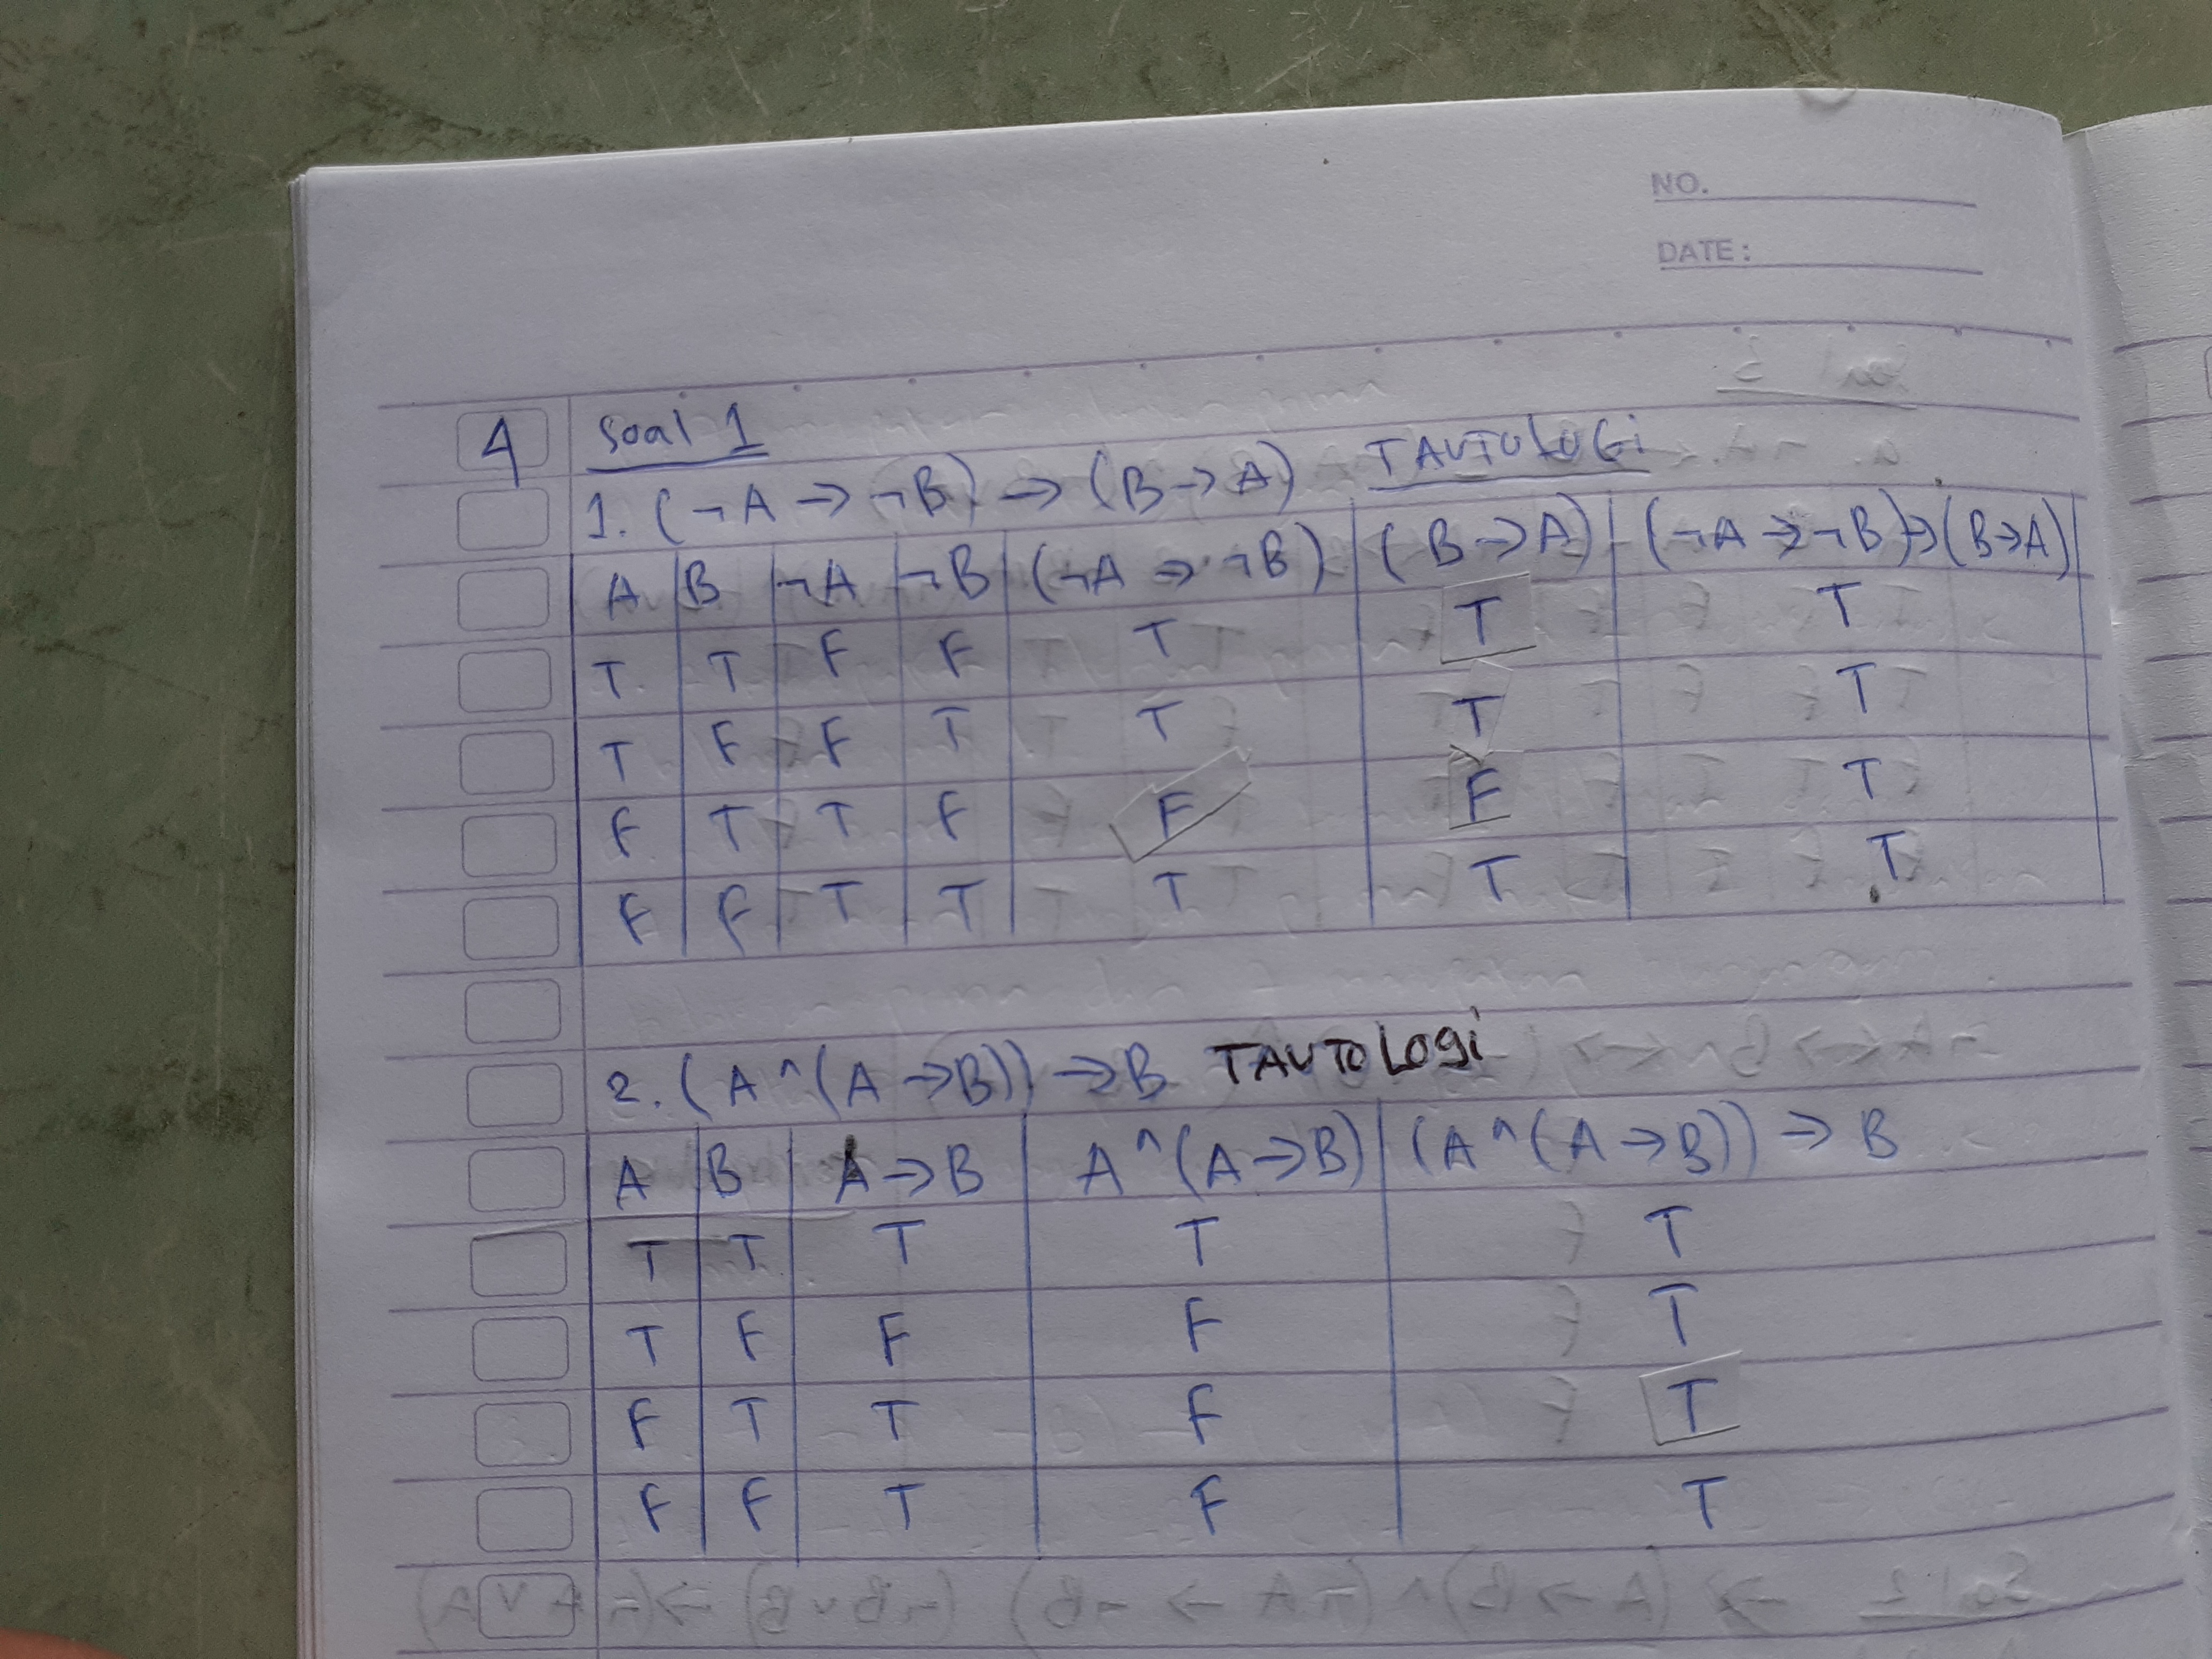 NO.
DATE:
4 Soal 1
1. (¬A → ¬B) → (B → A) TAUTOLOGI
A B ¬A ¬B (¬A → ¬B) (B → A) (¬A → ¬B) → (B → A)
T T F F T T T
T F F T T T T
F T T F F F T
F F T T T T T
2. (A ^ (A → B)) → B TAUTOLOGI
A B A → B A ^ (A → B) (A ^ (A → B)) → B
T T T T T
T F F F T
F T T F T
F F T F T